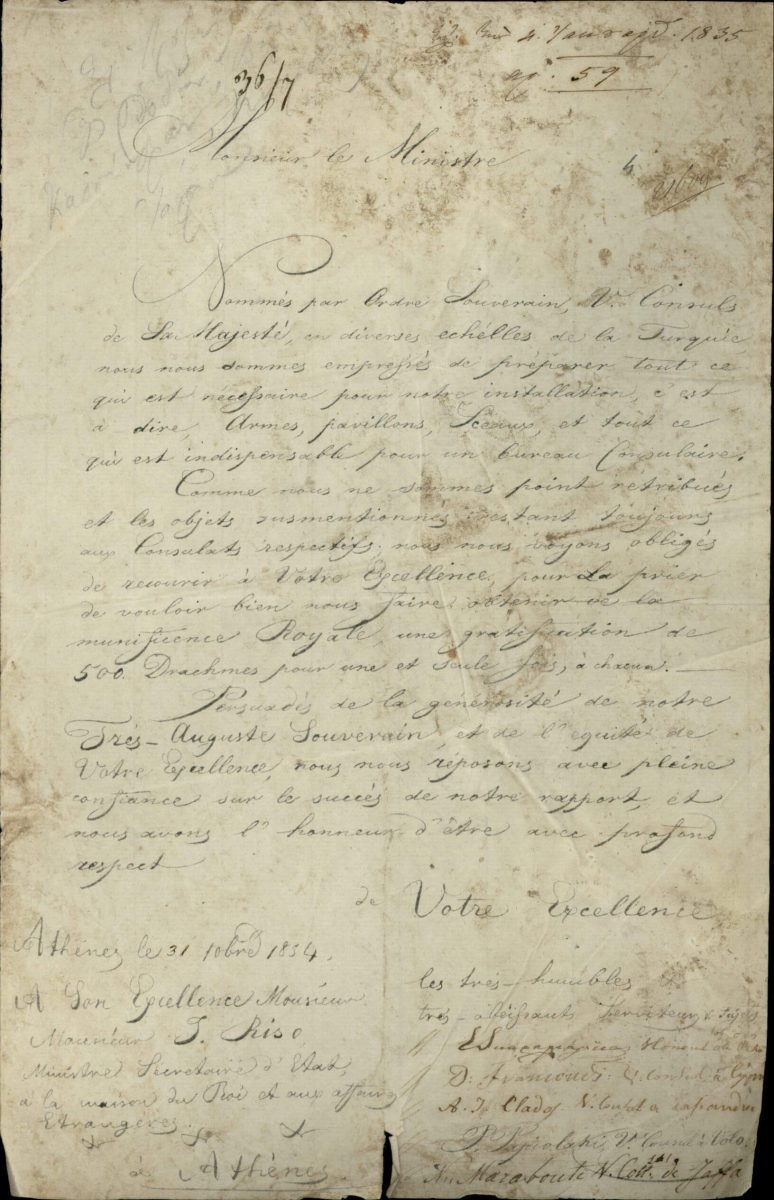 4. 1835
59
36/7
Monsieur le Ministre
Nommés par Ordre Souverain, V. Consuls
de Sa Majesté, en diverses echélles de la Turquie
nous nous sommes empressés de préparer tout ce
qui est nécessaire pour notre installation, c'est
à dire, Armes, pavillons, Sceaux, et tout ce
qui est indispensable pour un bureau Consulaire.
Comme nous ne sommes point rétribués
et les objets susmentionnés restant toujours
aux Consulats respectifs, nous nous voyons obligés
de recourir à Votre Excellence, pour La prier
de vouloir bien nous faire obtenir de la
munificence Royale, une gratification de
500. Drachmes pour une et seule fois, à chacun.
Persuadés de la générosité de notre
Trés-Auguste Souverain, et de l'equité de
Votre Excellence, nous nous réposons avec pleine
confiance sur le succés de notre rapport, et
nous avons l'honneur d'être avec profond
respect
de Votre Excellence
Athènes le 31 10bre 1834.
A Son Excellence Monsieur
Monsieur J. Riso
Ministre Secretaire d'Etat,
à la maison du Roi et aux affaires
Etrangères.
à Athènes
les trés-humbles &
trés-obéissants Serviteurs & Sujets
D. V. Consul à
A. Clados V. Consul a
V. Consul à Volo
Marabouti V. Con. de Jaffa